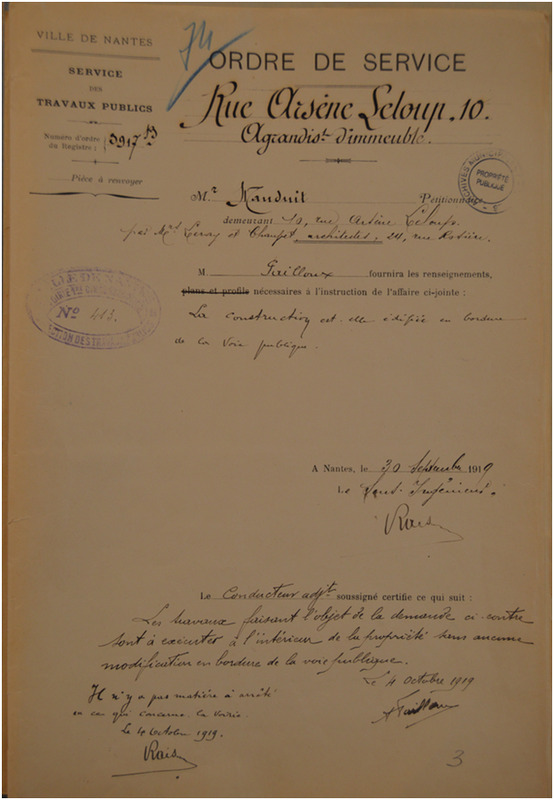 VILLE DE NANTES
SERVICE
DES
TRAVAUX PUBLICS
Numéro d'ordre
du Registre : 3917
Pièce à renvoyer
ORDRE DE SERVICE
Rue Arsène Leloup. 10.
Agrandist. d'immeuble.
PROPRIÉTÉ
PUBLIQUE
M.r Nauduit Petitionnaire
demeurant 10, rue Arsène Leloup.
par Mrs Leray et Chauvet, architectes, 24, rue Rosière.
M. Tailloux fournira les renseignements,
plans et profils nécessaires à l'instruction de l'affaire ci-jointe :
VILLE DE NANTES
No 413.
La construction est-elle édifiée en bordure
de la voie publique.
A Nantes, le 30 Septembre 1919
Le
Le Conducteur adjt. soussigné certifie ce qui suit :
Les travaux faisant l'objet de la demande ci-contre
sont à exécuter à l'intérieur de la propriété sans aucune
modification en bordure de la voie publique.
Le 4 Octobre 1919
Il n'y a pas matière à arrêté
en ce qui concerne la voirie.
le 4 Octobre 1919.
3